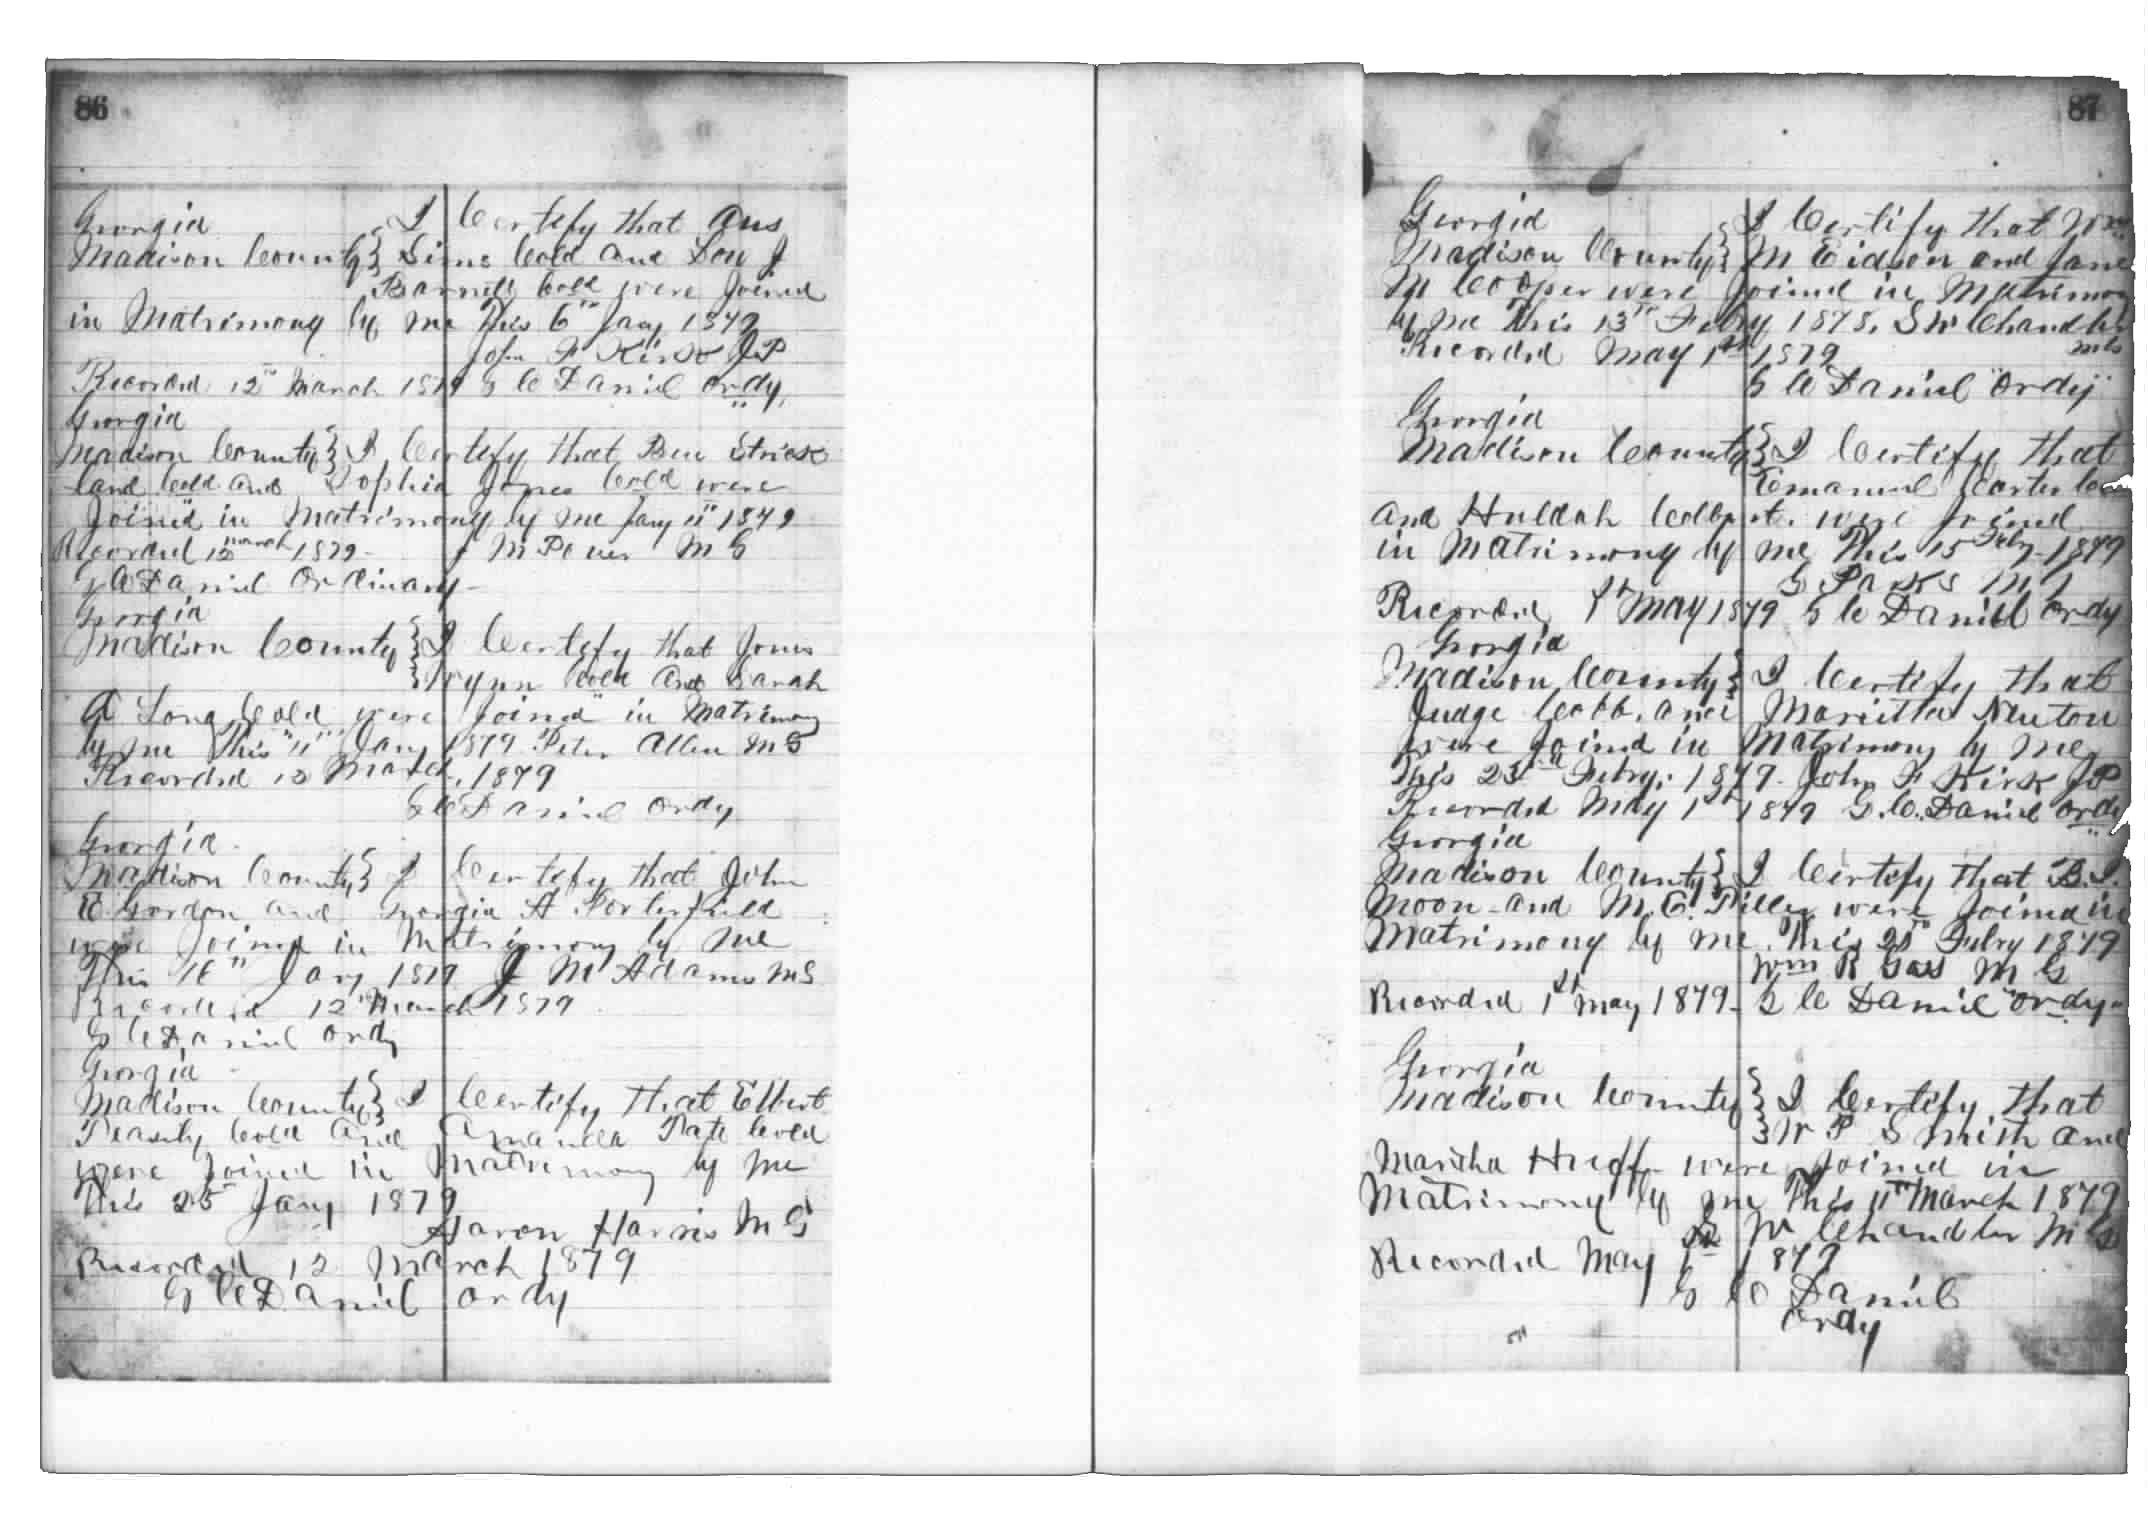 86
Georgia I Certify that Aus
Madison County } Sims Cold and Lou J
Barnett Cold were Joined
in Matrimony by me This 6th Jany 1879
John F Kirk J.P
Recorded 12th March 1879 G C Daniel Ordy,
Georgia
Madison County } I Certify that Ben Strick
land Cold and Sophia Jones Cold were
Joined in Matrimony by me Jany 11th 1879
Recorded 12 March 1879 - J M Power M G
G C Daniel Ordinary -
Georgia
Madison County } I Certify that Jones
Wynn Cold And Sarah
A Long Cold were Joined in Matrimony
by me This "11" Jany 1879 Peter Allen M G
Recorded 12 March, 1879
G C Daniel Ordy
Georgia -
Madison County } I Certify that John
E Gordon and Georgia A Porterfield
were Joined in Matrimony by me
This 16th Jany 1879 J M Adams M G
Recorded 12th March 1879
G C Daniel Ordy
Georgia -
Madison County } I Certify that Elbert
Teasly Cold And Amanda Tate Cold
were Joined in Matrimony by me
This 25th Jany 1879
Aaron Harris M G
Recorded 12 March 1879
G C Daniel Ordy
87
Georgia I Certify that Wm
Madison County } M Eidson and Jane
M Cooper were Joined in Matrimony
by me This 13th Febry 1878. S W Chandler
Recorded May 1st 1879 MG
G C Daniel "Ordy"
Georgia
Madison County } I Certify that
Emanuel Carter
And Huldah were Joined
in Matrimony by me This 15 Feby - 1879
G Parks M G
Recorded 1st May 1879 G C Daniel Ordy
Georgia
Madison County } I Certify that
Judge Cobb. and Marietta Newton
were Joined in Matrimony by me
This 23rd Febry. 1879. John F Kirk J.P
Recorded May 1st 1879 G. C. Daniel Ordy
Georgia
Madison County } I Certify that B. I.
Moon - and M. E. Tiller were Joined in
Matrimony by me. This Febry 1879
Wm R Goss M G
Recorded 1st May 1879 - G C Daniel "Ordy"
Georgia
Madison County } I Certify that
W P Smith and
Martha Huff were Joined in
Matrimony by me This 11th March 1879
S W Chandler M G
Recorded May 1st 1879
G C Daniel
Ordy